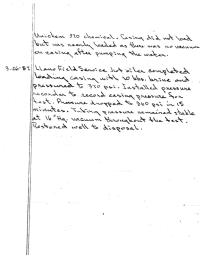 Unichem 320 chemical. Casing did not load
but was nearly loaded as there was no vacuum
on casing after pumping the water.
3-26-85 Llano Field Service hot oiler completed
loading casing with 20 bbs. brine and
pressured to 350 psi. Installed pressure
recorder to record casing pressure for
test. Pressure dropped to 340 psi in 15
minutes. Tubing pressure remained stable
at 16" Hg. vacuum throughout the test.
Restored well to disposal.